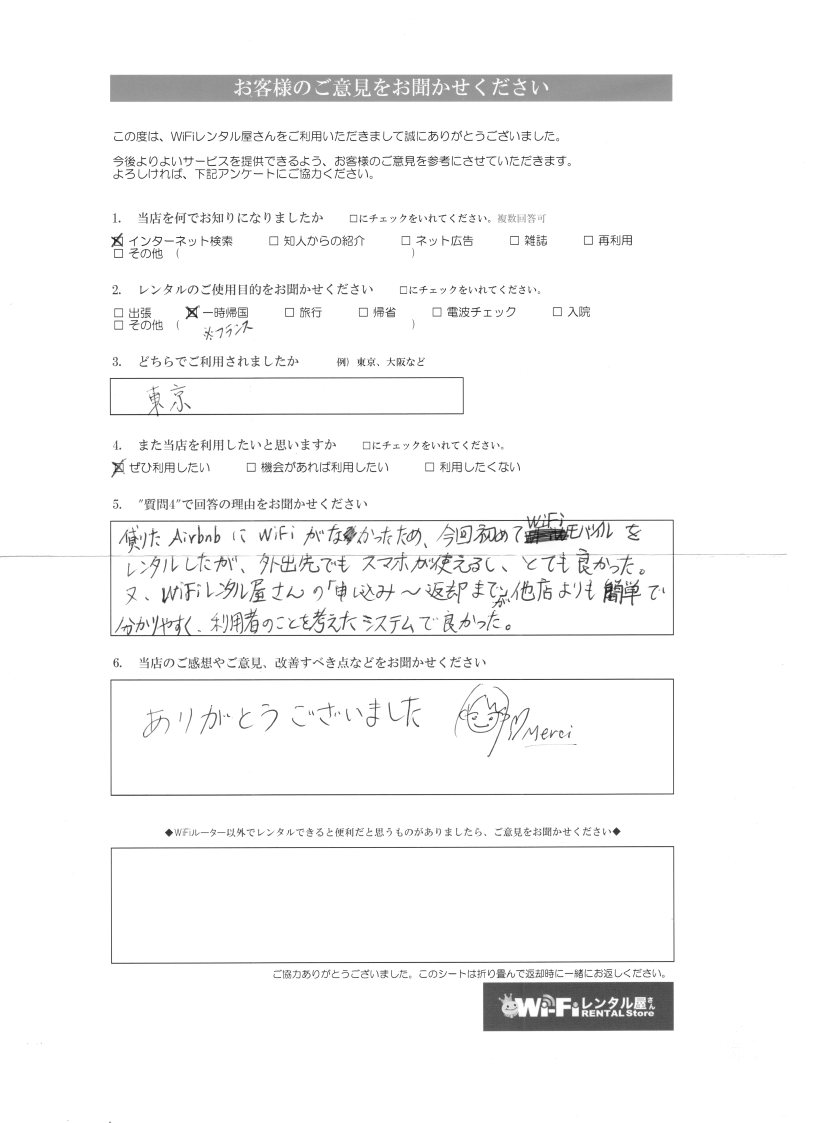 お客様のご意見をお聞かせください
この度は、WiFiレンタル屋さんをご利用いただきまして誠にありがとうございました。
今後よりよいサービスを提供できるよう、お客様のご意見を参考にさせていただきます。
よろしければ、下記アンケートにご協力ください。
1. 当店を何でお知りになりましたか □にチェックをいれてください。複数回答可
☒ インターネット検索 □ 知人からの紹介 □ ネット広告 □ 雑誌 □ 再利用
□ その他 ( )
2. レンタルのご使用目的をお聞かせください □にチェックをいれてください。
□ 出張 ☒ 一時帰国 □ 旅行 □ 帰省 □ 電波チェック □ 入院
□ その他 ( ※フランス )
3. どちらでご利用されましたか 例) 東京、大阪など
東京
4. また当店を利用したいと思いますか □にチェックをいれてください。
☒ ぜひ利用したい □ 機会があれば利用したい □ 利用したくない
5. "質問4"で回答の理由をお聞かせください
貸りた Airbnb に WiFi がなかったため、今回初めて WiFi モバイル を
レンタルしたが、外出先でも スマホが使えるし、とても良かった。
又、WiFiレンタル屋さんの「申し込み〜返却まで」が他店よりも 簡単で
分かりやすく、利用者のことを考えたシステムで良かった。
6. 当店のご感想やご意見、改善すべき点などをお聞かせください
ありがとうございました Merci
◆WiFiルーター以外でレンタルできると便利だと思うものがありましたら、ご意見をお聞かせください◆
ご協力ありがとうございました。このシートは折り畳んで返却時に一緒にお返しください。
Wi-Fiレンタル屋さん
RENTAL Store